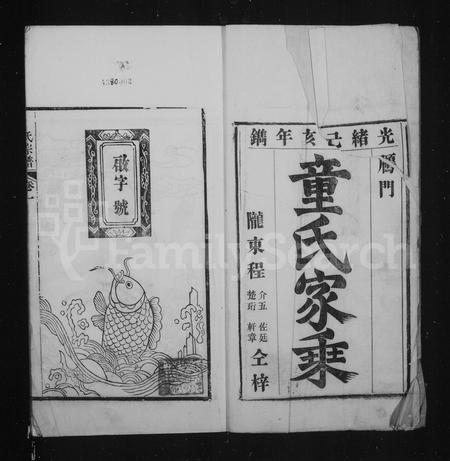 光緒己亥年鐫
鴈門
童氏家乘
隴東程
介五 佐廷
楚珩 軒章
仝梓
啟字號
氏宗譜 卷一
FamilySearch